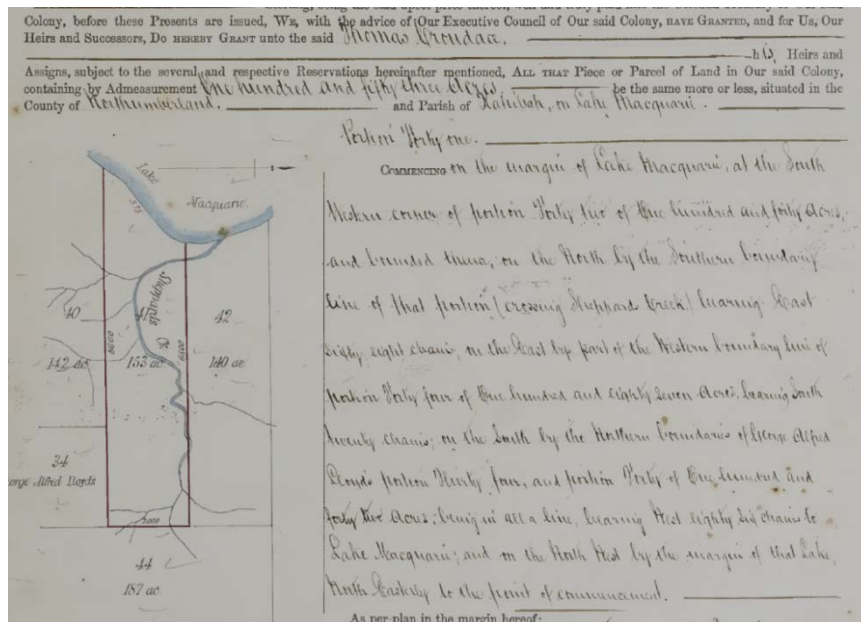 Colony, before these Presents are issued, WE, with the advice of Our Executive Council of Our said Colony, HAVE GRANTED, and for Us, Our
Heirs and Successors, DO HEREBY GRANT unto the said Thomas Croudace.
his Heirs and
Assigns, subject to the several and respective Reservations hereinafter mentioned, ALL THAT Piece or Parcel of Land in Our said Colony,
containing by Admeasurement One hundred and fifty three Acres. be the same more or less, situated in the
County of Northumberland. and Parish of Kahibah, on Lake Macquarie.
Portion Forty one.
COMMENCING on the margin of Lake Macquarie, at the South
Western corner of portion Forty two of One hundred and forty Acres,
and bounded thence, on the North by the Southern boundary
line of that portion (crossing Sheppard Creek) bearing East
sixty eight chains, on the East by part of the Western boundary line of
portion Forty four of One hundred and eighty seven Acres, bearing South
twenty chains; on the South by the Northern boundaries of George Alfred
Lloyd's portion Thirty four, and portion Forty of One hundred and
forty two Acres; being in all a line, bearing West eighty six chains to
Lake Macquarie; and on the North West by the margin of that Lake,
North Easterly to the point of commencement.
As per plan in the margin hereof:
Lake
Macquarie.
Sheppards
Ck
40
142 ac
41
153 ac
42
140 ac
34
George Alfred Lloyds
2000
44
187 ac